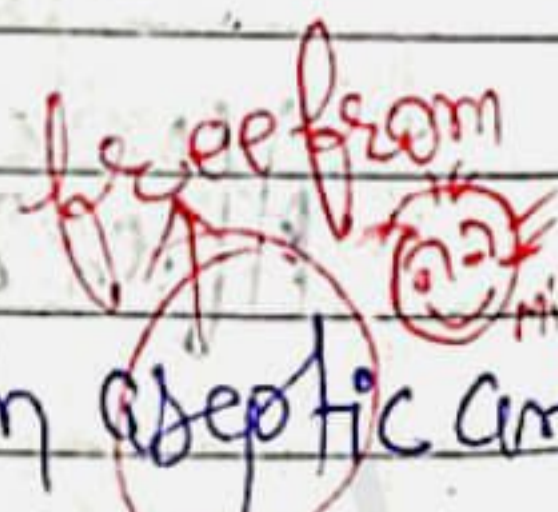 free from
aseptic